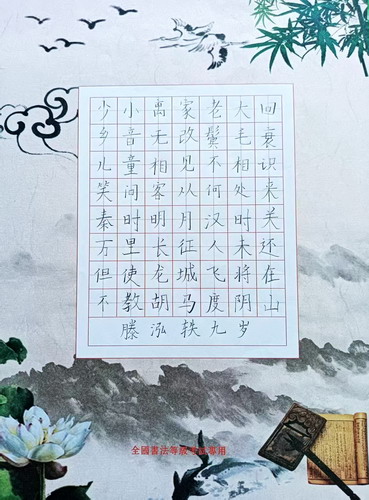 少小离家老大回
乡音无改鬓毛衰
儿童相见不相识
笑问客从何处来
秦时明月汉时关
万里长征人未还
但使龙城飞将在
不教胡马度阴山
滕泓轶九岁
全國書法等級考試專用